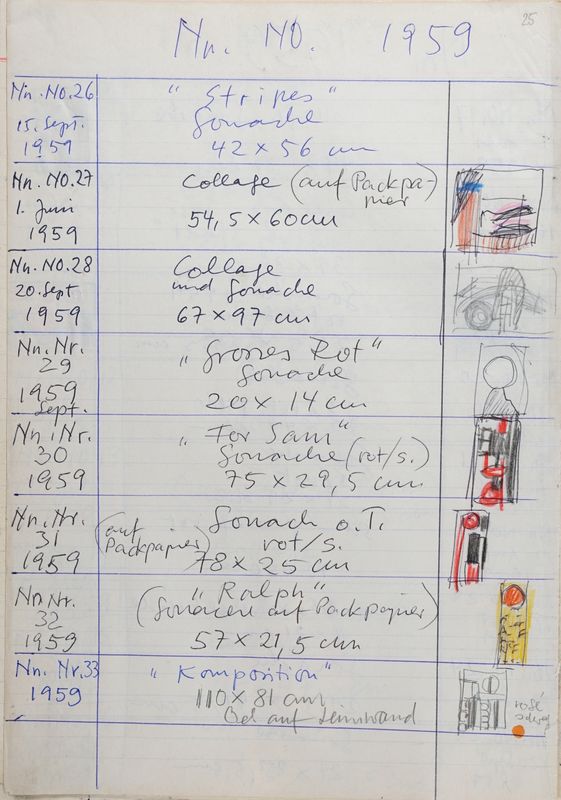 25
Nn. NO. 1959
Nn. NO. 26
15. Sept.
1959
"Stripes"
Gouache
42 x 56 cm
Nn. NO. 27
1. Juni
1959
Collage (auf Packpa-
pier)
54,5 x 60 cm
Nn. NO. 28
20. Sept
1959
Collage
und Gouache
67 x 97 cm
Nn. Nr.
29
1959
Sept.
"Grosses Rot"
Gouache
20 x 14 cm
Nn. Nr.
30
1959
"For Sam"
Gouache (rot/s.)
75 x 29,5 cm
Nn. Nr.
31
1959
(auf
Packpapier)
Gouach o.T.
rot/s.
78 x 25 cm
Nn Nr.
32
1959
"Ralph"
(Gouache auf Packpapier)
57 x 21,5 cm
Nn. Nr. 33
1959
"Komposition"
110 x 81 cm
Oel auf Leinwand
rosé